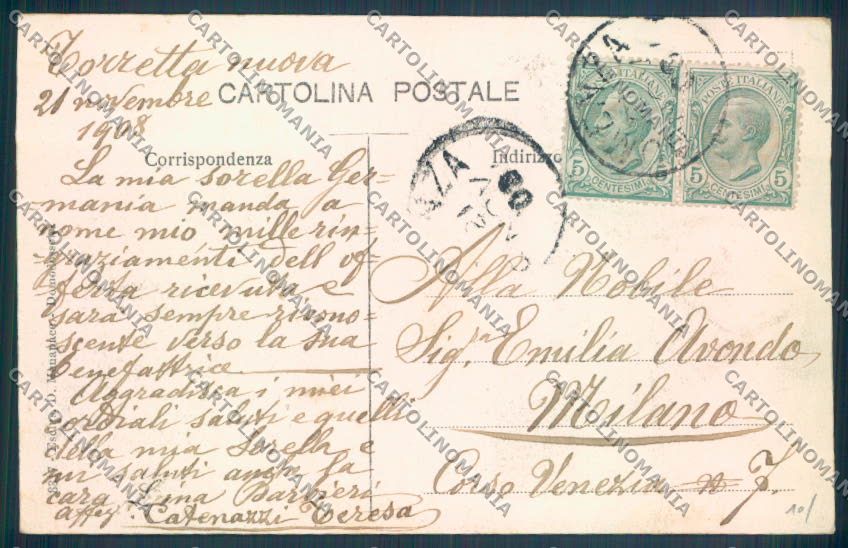 Torretta nuova
21 novembre
1908
CARTOLINA POSTALE
Corrispondenza
Indirizzo
La mia sorella Ger-
mania manda a
nome mio mille rin-
graziamenti dell'of-
ferta ricevuta e
sarà sempre ricono-
scente verso la sua
benefattrice.
Aggradisca i miei
cordiali saluti e quelli
della mia sorella e
mi saluti anche la
cara Luna Barbieri
affez. Catenazzi Teresa
Alla Nobile
Sig.ra Emilia Avondo
Milano
Corso Venezia n 7.
POSTE ITALIANE
5 CENTESIMI 5
POSTE ITALIANE
5 CENTESIMI 5
10/
CARTOLINOMANIA